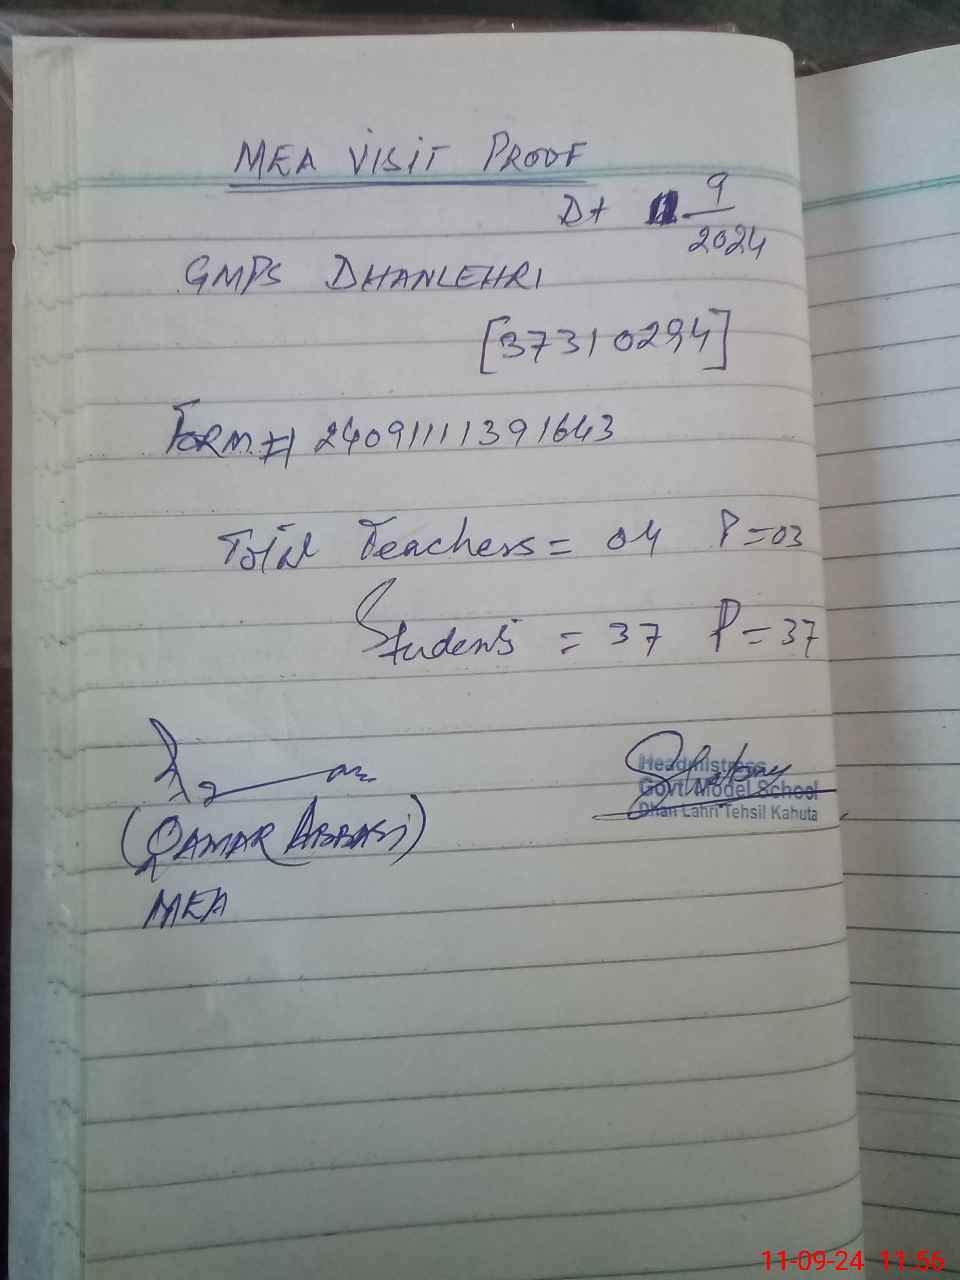 MEA VISIT PROOF
Dt 11 9/2024
GMPS DHANLEHRI
[37310294]
FORM # 24091111391643
Total Teachers = 04 P=03
Students = 37 P=37
Headmistress
Govt. Model School
Dhan Lahri Tehsil Kahuta
(QAMAR ABBASI)
MEA
11-09-24 11:56